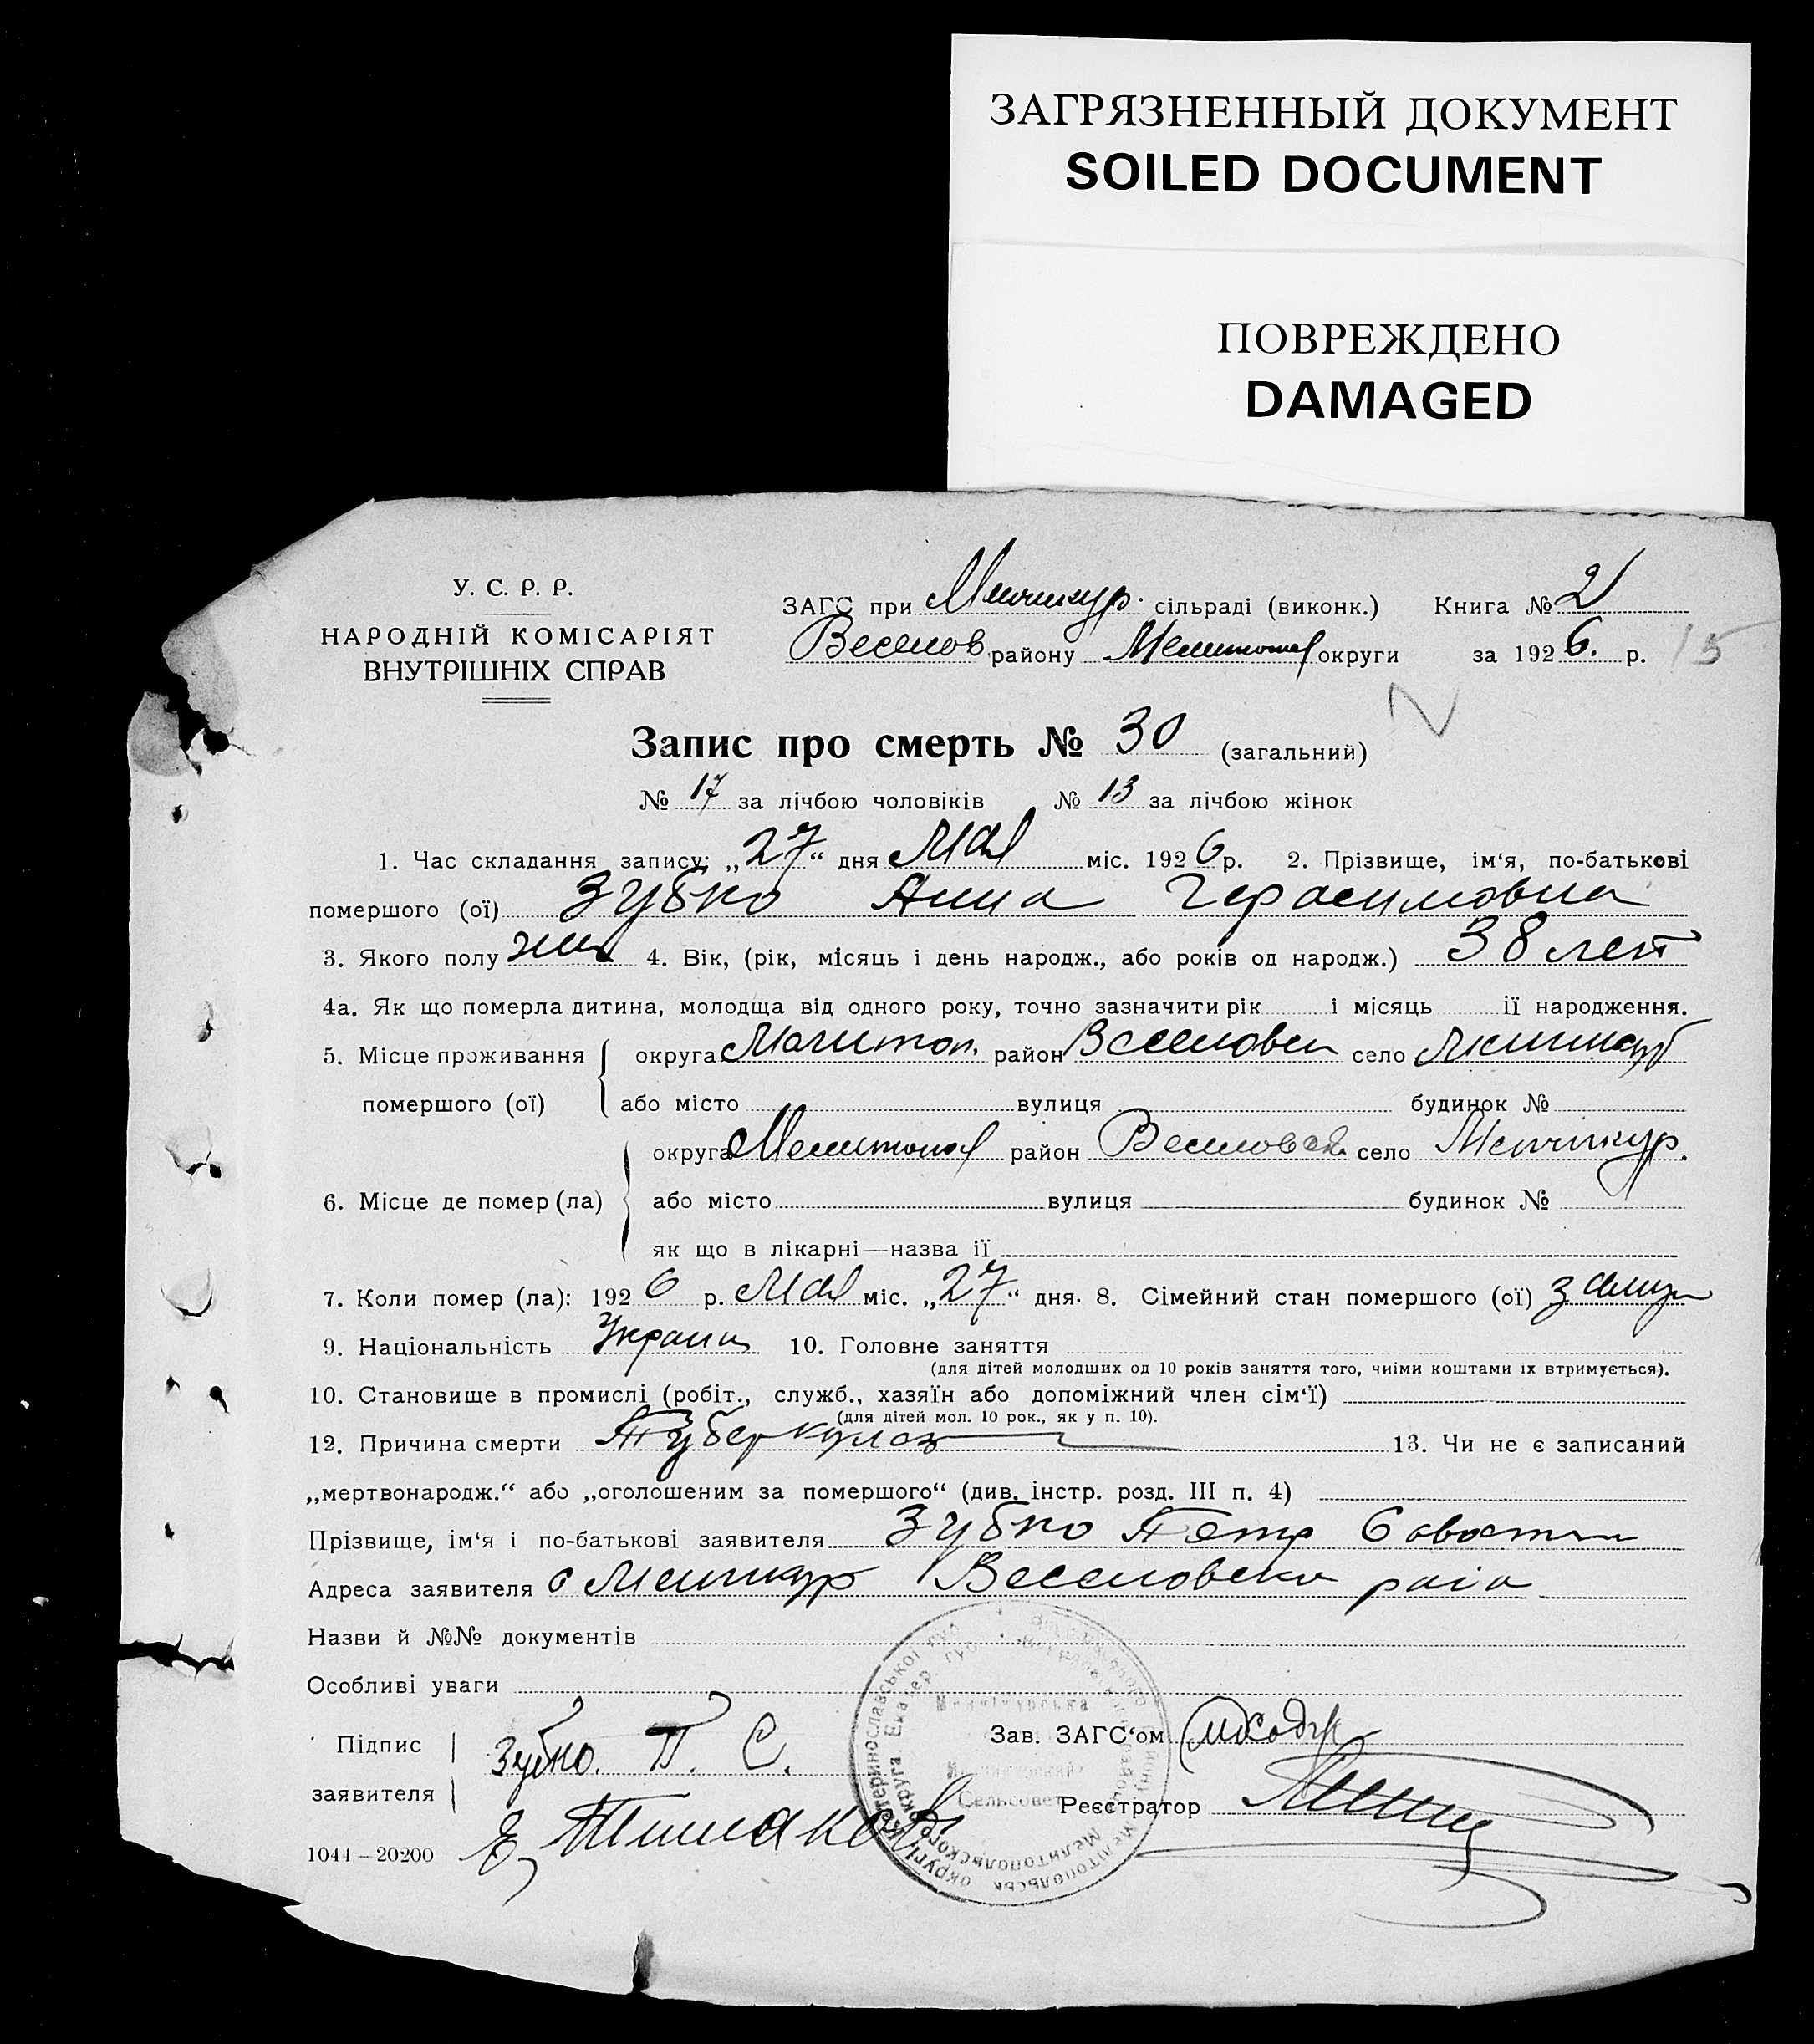 ЗАГРЯЗНЕННЫЙ ДОКУМЕНТ
SOILED DOCUMENT
ПОВРЕЖДЕНО
DAMAGED
У. С. Р. Р.
НАРОДНІЙ КОМІСАРІЯТ
ВНУТРІШНІХ СПРАВ
ЗАГС при Менчикур. сільраді (виконк.) Книга № 2
Веселов району Мелитопол округи за 1926. р. 15
Запис про смерть № 30 (загальний)
№ 17 за лічбою чоловіків № 13 за лічбою жінок
1. Час складання запису: „27“ дня Мая міс. 1926 р. 2. Прізвище, ім‘я, по-батькові
помершого (ої) Зубко Анна Герасимовна
3. Якого полу жен 4. Вік, (рік, місяць і день народж., або років од народж.) 38 лет
4а. Як що померла дитина, молодща від одного року, точно зазначити рік і місяць її народження.
5. Місце проживання округа район Веселовск село
помершого (ої) або місто вулиця будинок №
округа Мелитопол район Веселовск село Менчикур.
6. Місце де помер (ла) або місто вулиця будинок №
як що в лікарні—назва її
7. Коли помер (ла): 1926 р. Мая міс. „27“ дня. 8. Сімейний стан помершого (ої) замуж
9. Національність Украин 10. Головне заняття
(для дітей молодших од 10 років заняття того, чиїми коштами їх втримується).
10. Становище в промислі (робіт., служб., хазяїн або допоміжний член сім‘ї)
(для дітей мол. 10 рок., як у п. 10).
12. Причина смерти Туберкулез 13. Чи не є записаний
„мертвонародж.“ або „оголошеним за помершого“ (див. інстр. розд. III п. 4)
Прізвище, ім‘я і по-батькові заявителя Зубко Петр
Адреса заявителя с Менчикур Веселовск
Назви й №№ документів
Особливі уваги
Підпис Зубко. П. С. Зав. ЗАГС‘ом
заявителя Реєстратор
1044 – 20200
Катеринославської
Мелитопольского
Сельсовет